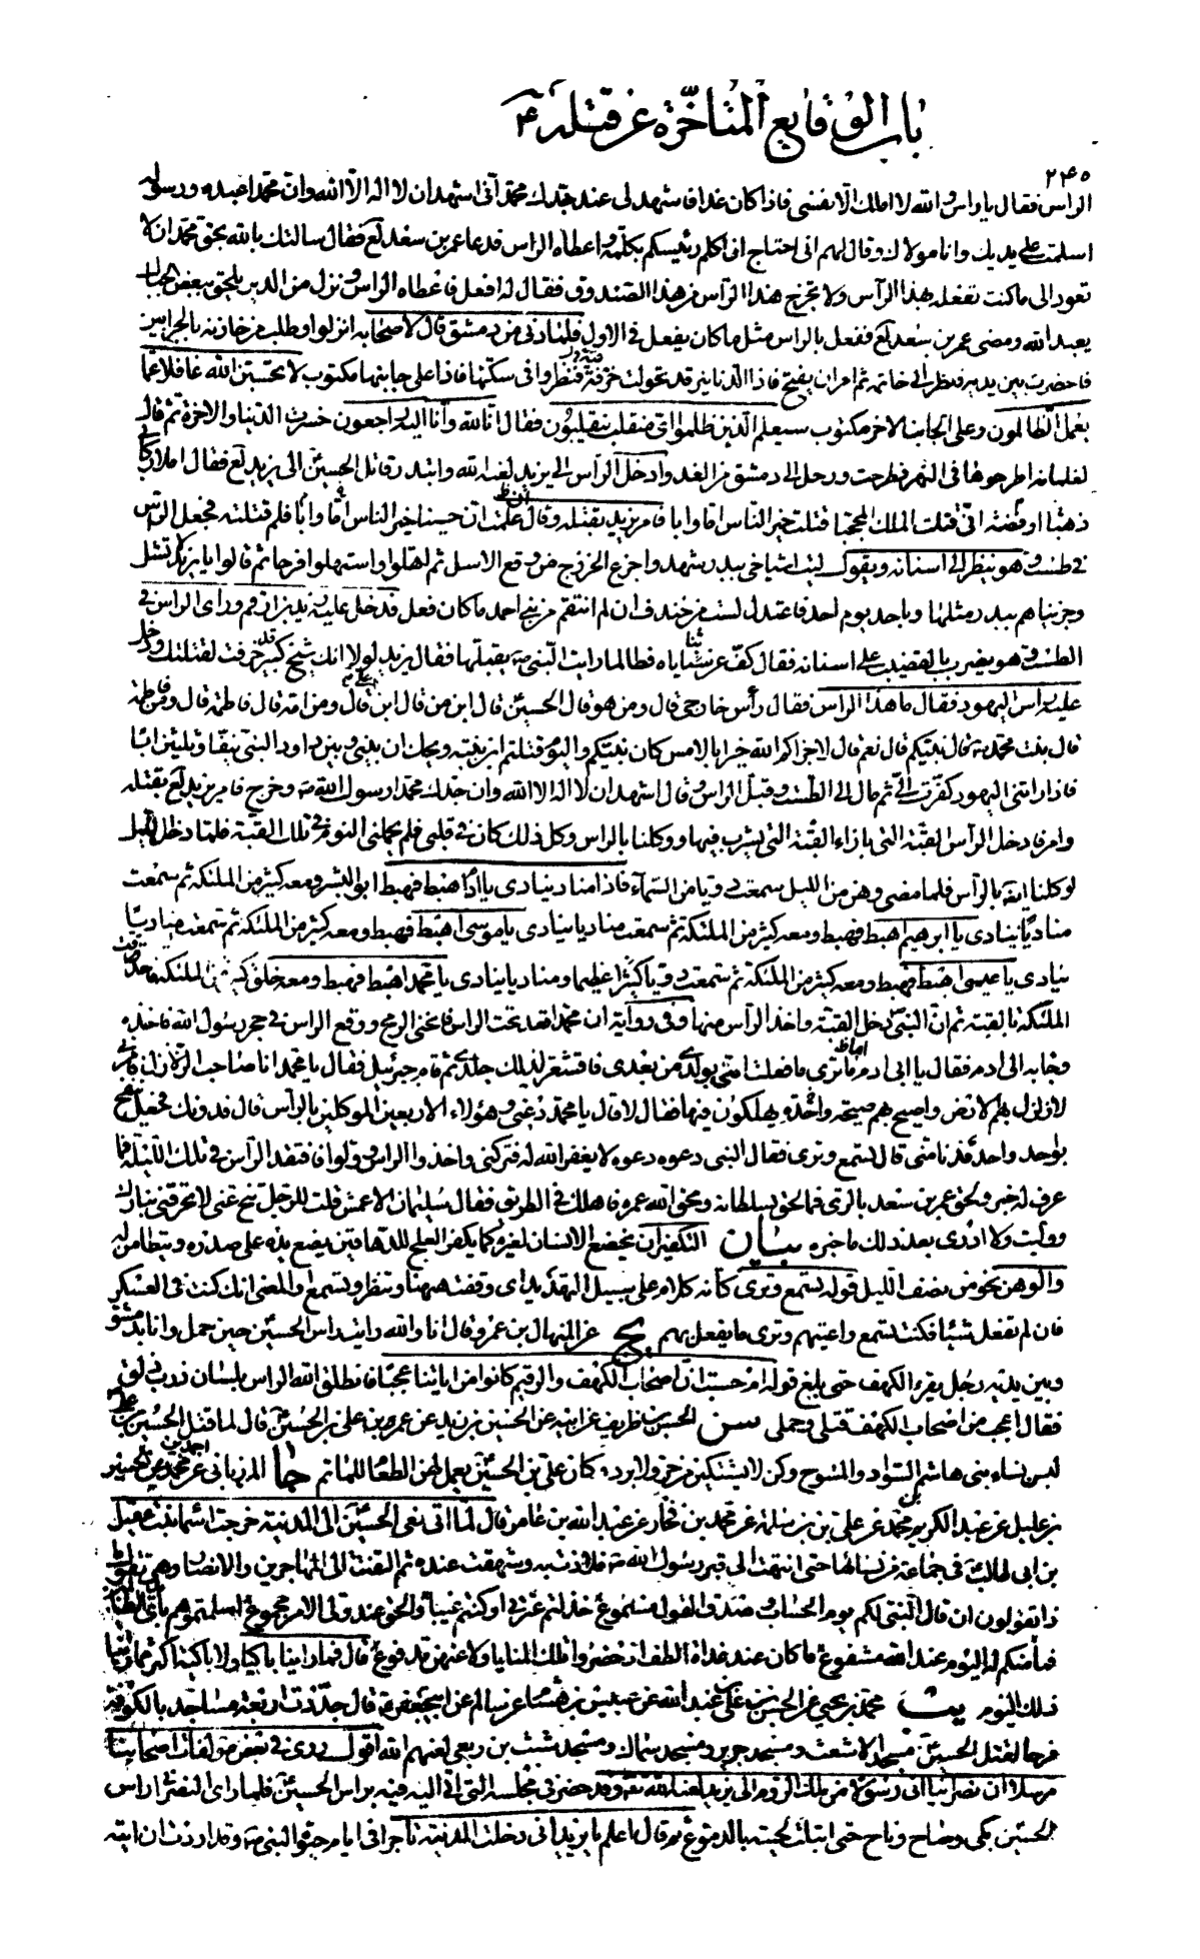 باب الوقایع المتاخرة عن قتله ع
۲۴۵
الراس فقال یا راس والله لا املك الا نفسی فاذا كان غدا فاشهد لی عند جدك محمد انی اشهد ان لا اله الا الله وان محمدا عبده ورسوله
اسلمت علی یدیك وانا مولاك وقال لهم انی احتاج ان اكلم رئیسكم بكلمة واعطاه الراس فدعا عمر بن سعد لع فقال سالتك بالله بحق محمد ان لا
تعود الی ما كنت تفعله بهذا الرأس ولا تخرج هذا الرأس من هذا الصندوق فقال له افعل فاعطاه الراس ونزل من الدیر یلحق ببعض الجبال
یعبد الله ومضی عمر بن سعد لع ففعل بالراس مثل ما كان یفعل فی الاول فلما دنی من دمشق قال لاصحابه انزلوا وطلب من خازنه بالجرابین
فاحضرت بین یدیه فنظر الی خاتمه ثم امر ان یفتح فاذا الدنانیر قد تحولت خزفیة فنظروا فی سكتها فاذا علی جانبها مكتوب لا تحسبن الله غافلا عما
یعمل الظالمون وعلی الجانب الاخر مكتوب سیعلم الذین ظلموا ای منقلب ینقلبون فقال انا لله وانا الیه راجعون خسرت الدنیا والاخرة ثم قال
لغلمانه اطرحوها فی النهر فطرحت ورحل الی دمشق من الغد وادخل الرأس الی یزید لعنه الله وابتدر قاتل الحسین الی یزید لع فقال املا ركابی
ذهبا او فضة انی قتلت الملك المحجبا قتلت خیر الناس اما وابا فامر یزید بقتله وقال ان علمت ان حسینا خیر الناس اما وابا فلم قتلته فجعل الراس
فی طست وهو ینظر الی اسنانه ویقول لیت اشیاخی ببدر شهدوا جزع الخزرج من وقع الاسل ثم لاهلوا واستهلوا فرحا ثم قالوا یا یزید لا تشل
وجزیناهم ببدر مثلها وباحد یوم احد فاعتدل لست من خندف ان لم انتقم من بنی احمد ما كان فعل فدخل علیه زید بن ارقم ورای الراس فی
الطست وهو یضرب بالقضیب علی اسنانه فقال كف عن ثنایاه فطالما رایت النبی ص یقبلها فقال یزید لولا انك شیخ كبیر قد خرفت لقتلتك ودخل
علیه راس الیهود فقال ما هذا الراس فقال رأس خارجی قال ومن هو قال الحسین قال ابن من قال ابن علی قال ومن امه قال فاطمة قال ومن فاطمة
قال بنت محمد ص قال نبیكم قال نعم قال لا جزاكم الله خیرا بالامس كان نبیكم والیوم قتلتم ابن بنته ویحك ان بینی وبین داود النبی نیفا وثلثین ابا
فاذا راتنی الیهود كفرت الی ثم مال الی الطست وقبل الراس وقال اشهد ان لا اله الا الله وان جدك محمدا رسول الله ص وخرج فامر یزید لع بقتله
وامر فادخل الرأس القبة التی بازاء القبة التی یشرب فیها ووكلنا بالراس وكل ذلك كان فی قلبی فلم یحملنی النوم فی تلك القبة فلما دخل اللیل
وكلنا ایضا بالرأس فلما مضی وهن من اللیل سمعت دویا من السماء فاذا مناد ینادی یا ادم اهبط فهبط ابو البشر ومعه كثیر من الملئكة ثم سمعت
منادیا ینادی یا ابرهیم اهبط فهبط ومعه كثیر من الملئكة ثم سمعت منادیا ینادی یا موسی اهبط فهبط ومعه كثیر من الملئكة ثم سمعت منادیا
ینادی یا عیسی اهبط فهبط ومعه كثیر من الملئكة ثم سمعت دویا كثیرا عظیما ومنادیا ینادی یا محمد اهبط فهبط ومعه خلق كثیر من الملئكة فاحدقت
الملئكة بالقبة ثم ان النبی دخل القبة واخذ الرأس منها وفی روایة ان محمدا قعد تحت الراس فانحنی الرمح ووقع الراس فی حجر رسول الله فاخذه
وجاء به الی ادم فقال یا ابی ادم ما تری ما فعلت امتی بولدی من بعدی فاقشعر لذلك جلدی ثم قام جبرئیل فقال یا محمد انا صاحب الزلازل فامرنی
لازلزل بهم الارض واصیح بهم صیحة واحدة یهلكون فیها فقال لا قال یا محمد دعنی وهؤلاء الاربعین الموكلین بالرأس قال فدونك فجعل ینفخ
بواحد واحد فدنا منی قال تسمع وتری فقال النبی دعوه دعوه لا یغفر الله له فتركنی واخذوا الراس وولوا فافتقد الرأس فی تلك اللیلة فما
عرف له خبر ولحق عمر بن سعد بالری فما لحق بسلطانه ومحق الله عمره فاهلك فی الطریق فقال سلیمان الاعمش قلت للرجل تنح عنی لا تحرقنی بنارك
وولیت ولا ادری بعد ذلك ما خبره بیان التكفیر ان یخضع الانسان لغیره كما یكفر العلج للدهاقین یضع یده علی صدره ویتطامن له
والوهن نحو من نصف اللیل قوله تسمع وتری كأنه كلام علی سبیل التهدید ای وقفت ههنا وتنظر وتسمع او المعنی انك كنت فی العسكر
فان لم تفعل شیئا فكنت تسمع واعیتهم وتری ما یفعل بهم یج عن المنهال بن عمرو قال انا والله رایت راس الحسین حین حمل وانا بدمشق
وبین یدیه رجل یقرء الكهف حتی بلغ قوله ام حسبت ان اصحاب الكهف والرقیم كانوا من ایاتنا عجبا فانطق الله الراس بلسان ذرب ذلق
فقال اعجب من اصحاب الكهف قتلی وحملی سن الحسن بن ظریف عن ابیه عن الحسین بن زید عن عمر بن علی بن الحسین قال لما قتل الحسین بن علی
لبس نساء بنی هاشم السواد والمسوح وكن لا یشتكین من حر ولا برد وكان علی بن الحسین یعمل لهن الطعام للماتم جا المرزبانی عن احمد بن محمد
بن علیل عن عبد الكریم بن محمد عن علی بن سلمة عن محمد بن فخار عن عبد الله بن عامر قال لما اتی نعی الحسین الی المدینة خرجت اسماء بنت عقیل
بن ابی طالب فی جماعة من نسائها حتی انتهت الی قبر رسول الله ص فلاذت به وشهقت عنده ثم التفت الی المهاجرین والانصار وهی تقول
ماذا تقولون ان قال النبی لكم یوم الحساب وصدق القول مسموع خذلتم عترتی او كنتم غیبا والحق عند ولی الامر مجموع اسلمتموهم بأیدی الظالمین
فما منكم له الیوم عند الله مشفوع ما كان عند غداة الطف اذ حضروا تلك المنایا ولا عنهن مدفوع قال فما راینا باكیا ولا باكیة اكثر مما راینا
ذلك الیوم یب محمد بن یحیی عن الحسن بن علی بن عبد الله عن عبیس بن هشام عن سالم عن ابی جعفر قال جددت اربعة مساجد بالكوفة
فرحا لقتل الحسین مسجد الاشعث ومسجد جریر ومسجد سماك ومسجد شبث بن ربعی لعنهم الله اقول روی فی بعض مؤلفات اصحابنا
مرسلا ان نصرانیا اتی رسولا من ملك الروم الی یزید لعنه الله تعه وقد حضر فی مجلسه الذی اتی الیه فیه براس الحسین فلما رای النصرانی راس
الحسین بكی وصاح وناح حتی ابتلت لحیته بالدموع ثم قال اعلم یا یزید انی دخلت المدینة تاجرا فی ایام حیوة النبی ص وقد اردت ان اتیه